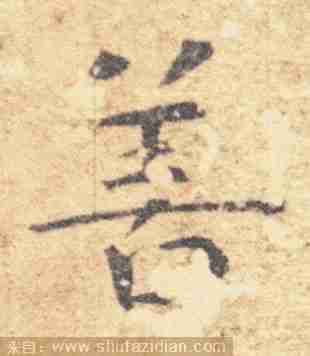 善
来自：www.shufazidian.com